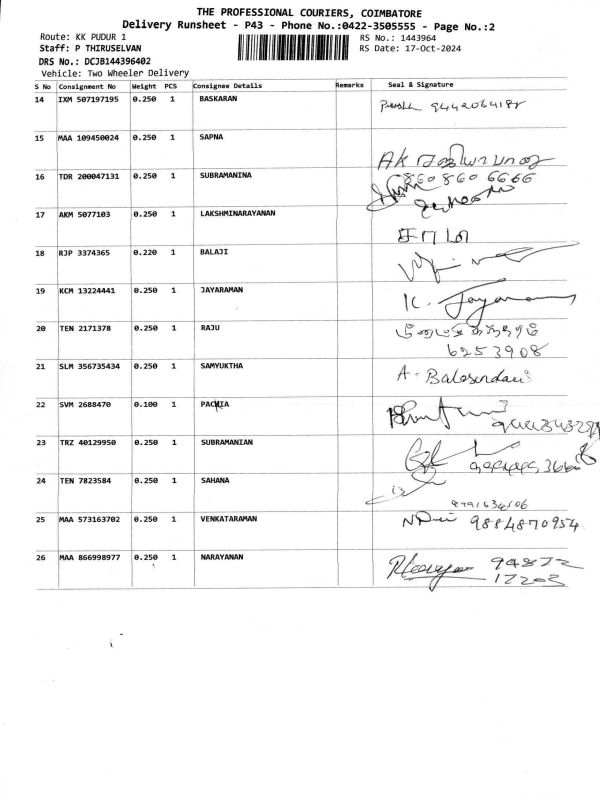 THE PROFESSIONAL COURIERS, COIMBATORE
Delivery Runsheet - P43 - Phone No.:0422-3505555 - Page No.:2
Route: KK PUDUR 1 RS No.: 1443964
Staff: P THIRUSELVAN RS Date: 17-Oct-2024
DRS No.: DCJB144396402
Vehicle: Two Wheeler Delivery
S No Consignment No Weight PCS Consignee Details Remarks Seal & Signature
14 IXM 507197195 0.250 1 BASKARAN
15 MAA 109450024 0.250 1 SAPNA
AK
16 TDR 200047131 0.250 1 SUBRAMANINA 860 860 6666
17 AKM 5077103 0.250 1 LAKSHMINARAYANAN
18 RJP 3374365 0.220 1 BALAJI
19 KCM 13224441 0.250 1 JAYARAMAN
K. Jayaraman
20 TEN 2171378 0.250 1 RAJU
6253908
21 SLM 356735434 0.250 1 SAMYUKTHA
22 SVM 2688470 0.100 1
23 TRZ 40129950 0.250 1 SUBRAMANIAN
24 TEN 7823584 0.250 1 SAHANA
25 MAA 573163702 0.250 1 VENKATARAMAN 9884870954
26 MAA 866998977 0.250 1 NARAYANAN 94872
17203